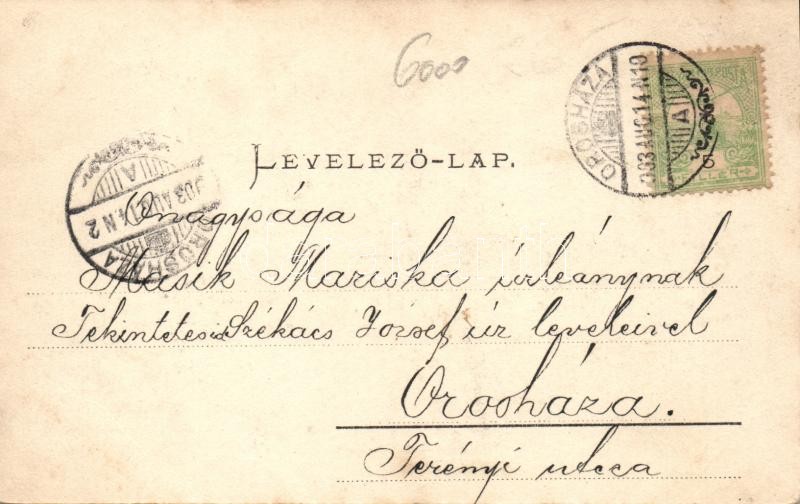 6000
OROSHÁZA
903 AUG 14 N10
A
LEVELEZŐ-LAP.
OROSHÁZA
903 AUG 14 N 2
A
Önagysága
Musik Mariska úrleánynak
Tekintetes Székács József úr leveleivel
Orosháza.
Terényi utcca